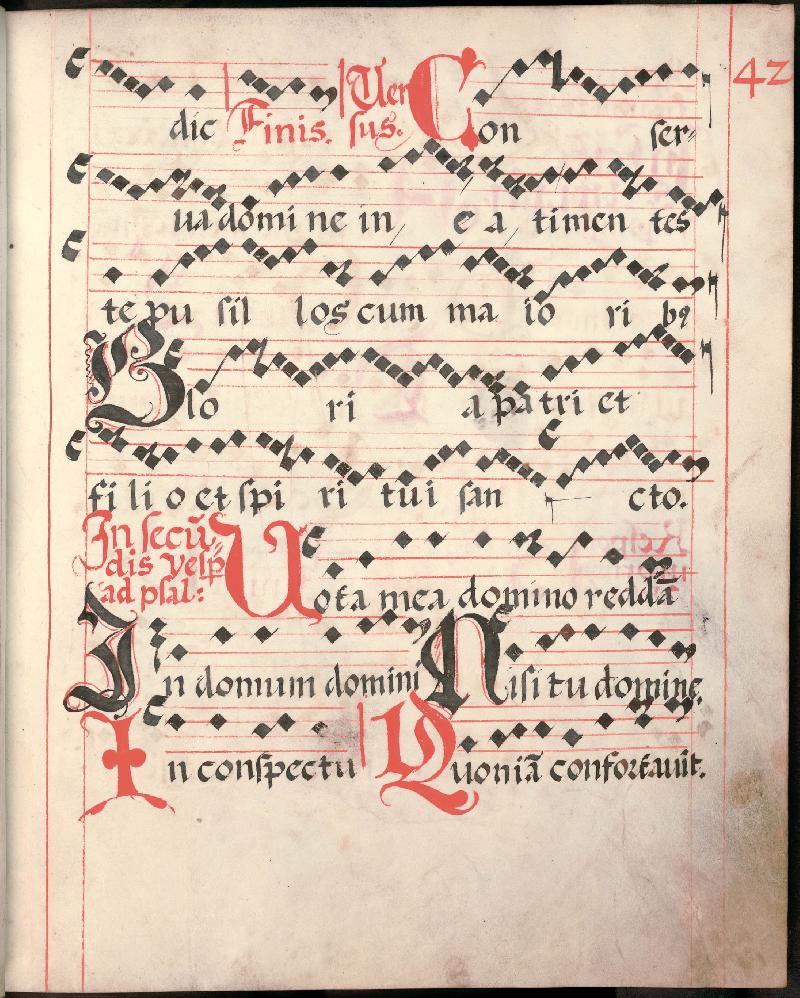 42
dic Finis. Uersus. Con ser-
ua domi ne in e a timen tes
te pu sil los cum ma io ri bꝰ
Glo ri a patri et
fi li o et spi ri tui san cto.
In secū
dis vesp̄
ad psal: Uota mea domino reddā
In domum domini Nisi tu domine.
In conspectu Quoniā confortauit.